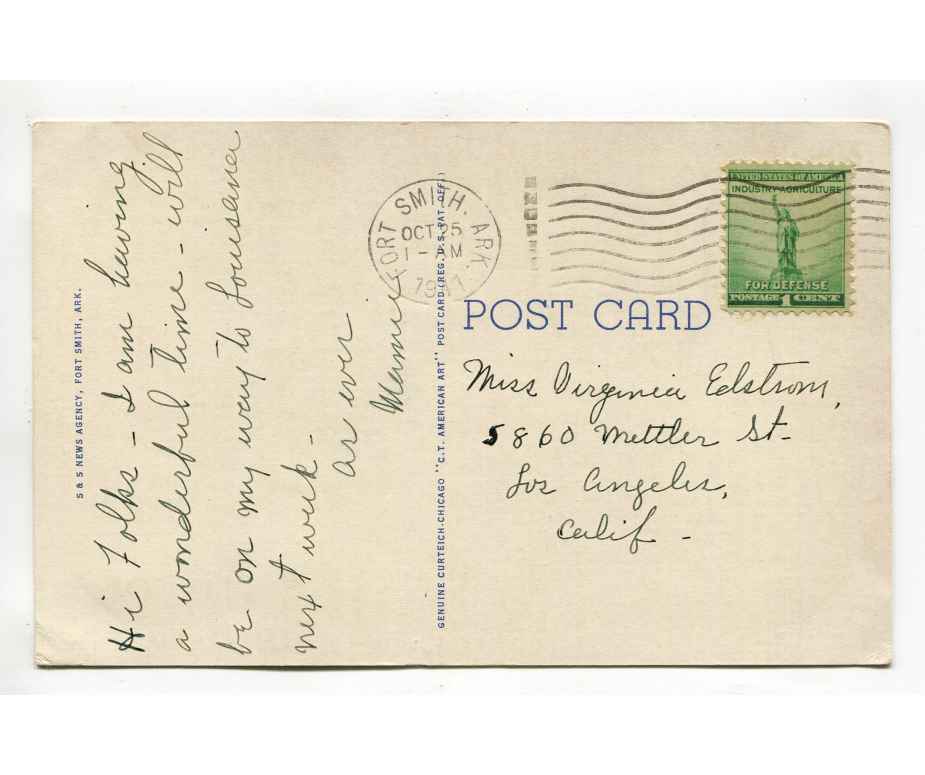 S & S NEWS AGENCY, FORT SMITH, ARK.
Hi Folks - I am having
a wonderful time - will
be on my way to Louisiana
next week -
as ever
GENUINE CURTEICH-CHICAGO "C.T. AMERICAN ART" POST CARD (REG. U.S. PAT. OFF.)
FORT SMITH, ARK.
OCT
1 -
UNITED STATES OF AMERICA
INDUSTRY-AGRICULTURE
FOR DEFENSE
POSTAGE 1 CENT
POST CARD
Miss Virginia Edstrom,
5860 Mettler St-
Los Angeles,
Calif -